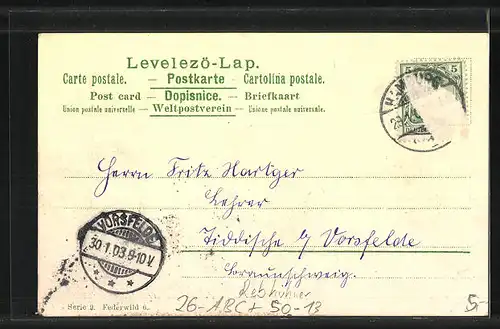 Levelezö-Lap.
Carte postale. — Postkarte — Cartolina postale.
Post card — Dopisnice. — Briefkaart
Union postale universelle — Weltpostverein — Unione postale universale.
5 5
Herrn Fritz Hartger
Lehrer
Tiddische b/ Vorsfelde
Braunschweig.
VORSFELDE
30.1.03.9-10V.
Serie 2. Federwild 6.
Rebhühner
26-1BC+ 50-13
5.-